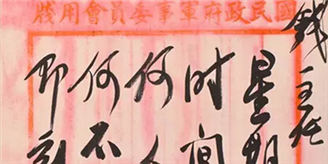 國民政府軍事委員會用牋
錢主任
星期
时间
何人
何不
即刻